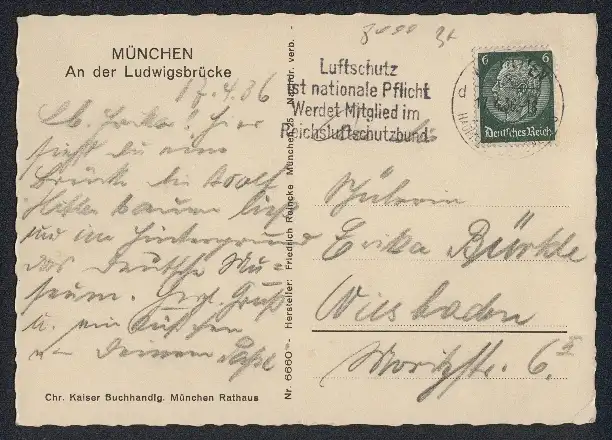 MÜNCHEN
An der Ludwigsbrücke
17.4.36
Lb. Erika! Hier
siehst du eine
Brücke die Adolf
Hitler bauen ließ
und im Hintergrund
das deutsche Mu-
seum. Herzl. Gruß
u. ein Küßchen
v. Deinem
Chr. Kaiser Buchhandlg. München Rathaus
Nr. 6660 - Hersteller: Friedrich Reincke München 25 Nachdr. verb. -
Luftschutz
ist nationale Pflicht
Werdet Mitglied im
Reichsluftschutzbund
6 6
Deutsches Reich
Schülerin
Erika Bürkle
Wiesbaden
Moritzstr. 6 II